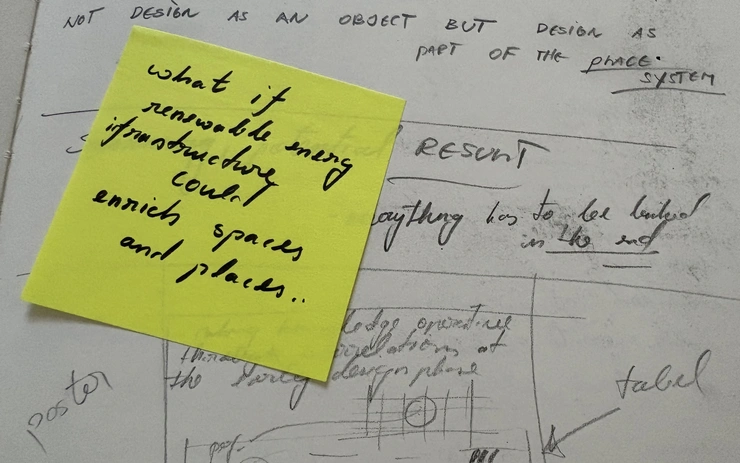 NOT DESIGN AS AN OBJECT BUT DESIGN AS
PART OF THE PLACE.
SYSTEM
what if
renewable energy
ifrastructure
could
enrich spaces
and places..
RESULT
has to be linked
in the end
operative
at
the early design phase
poster
label